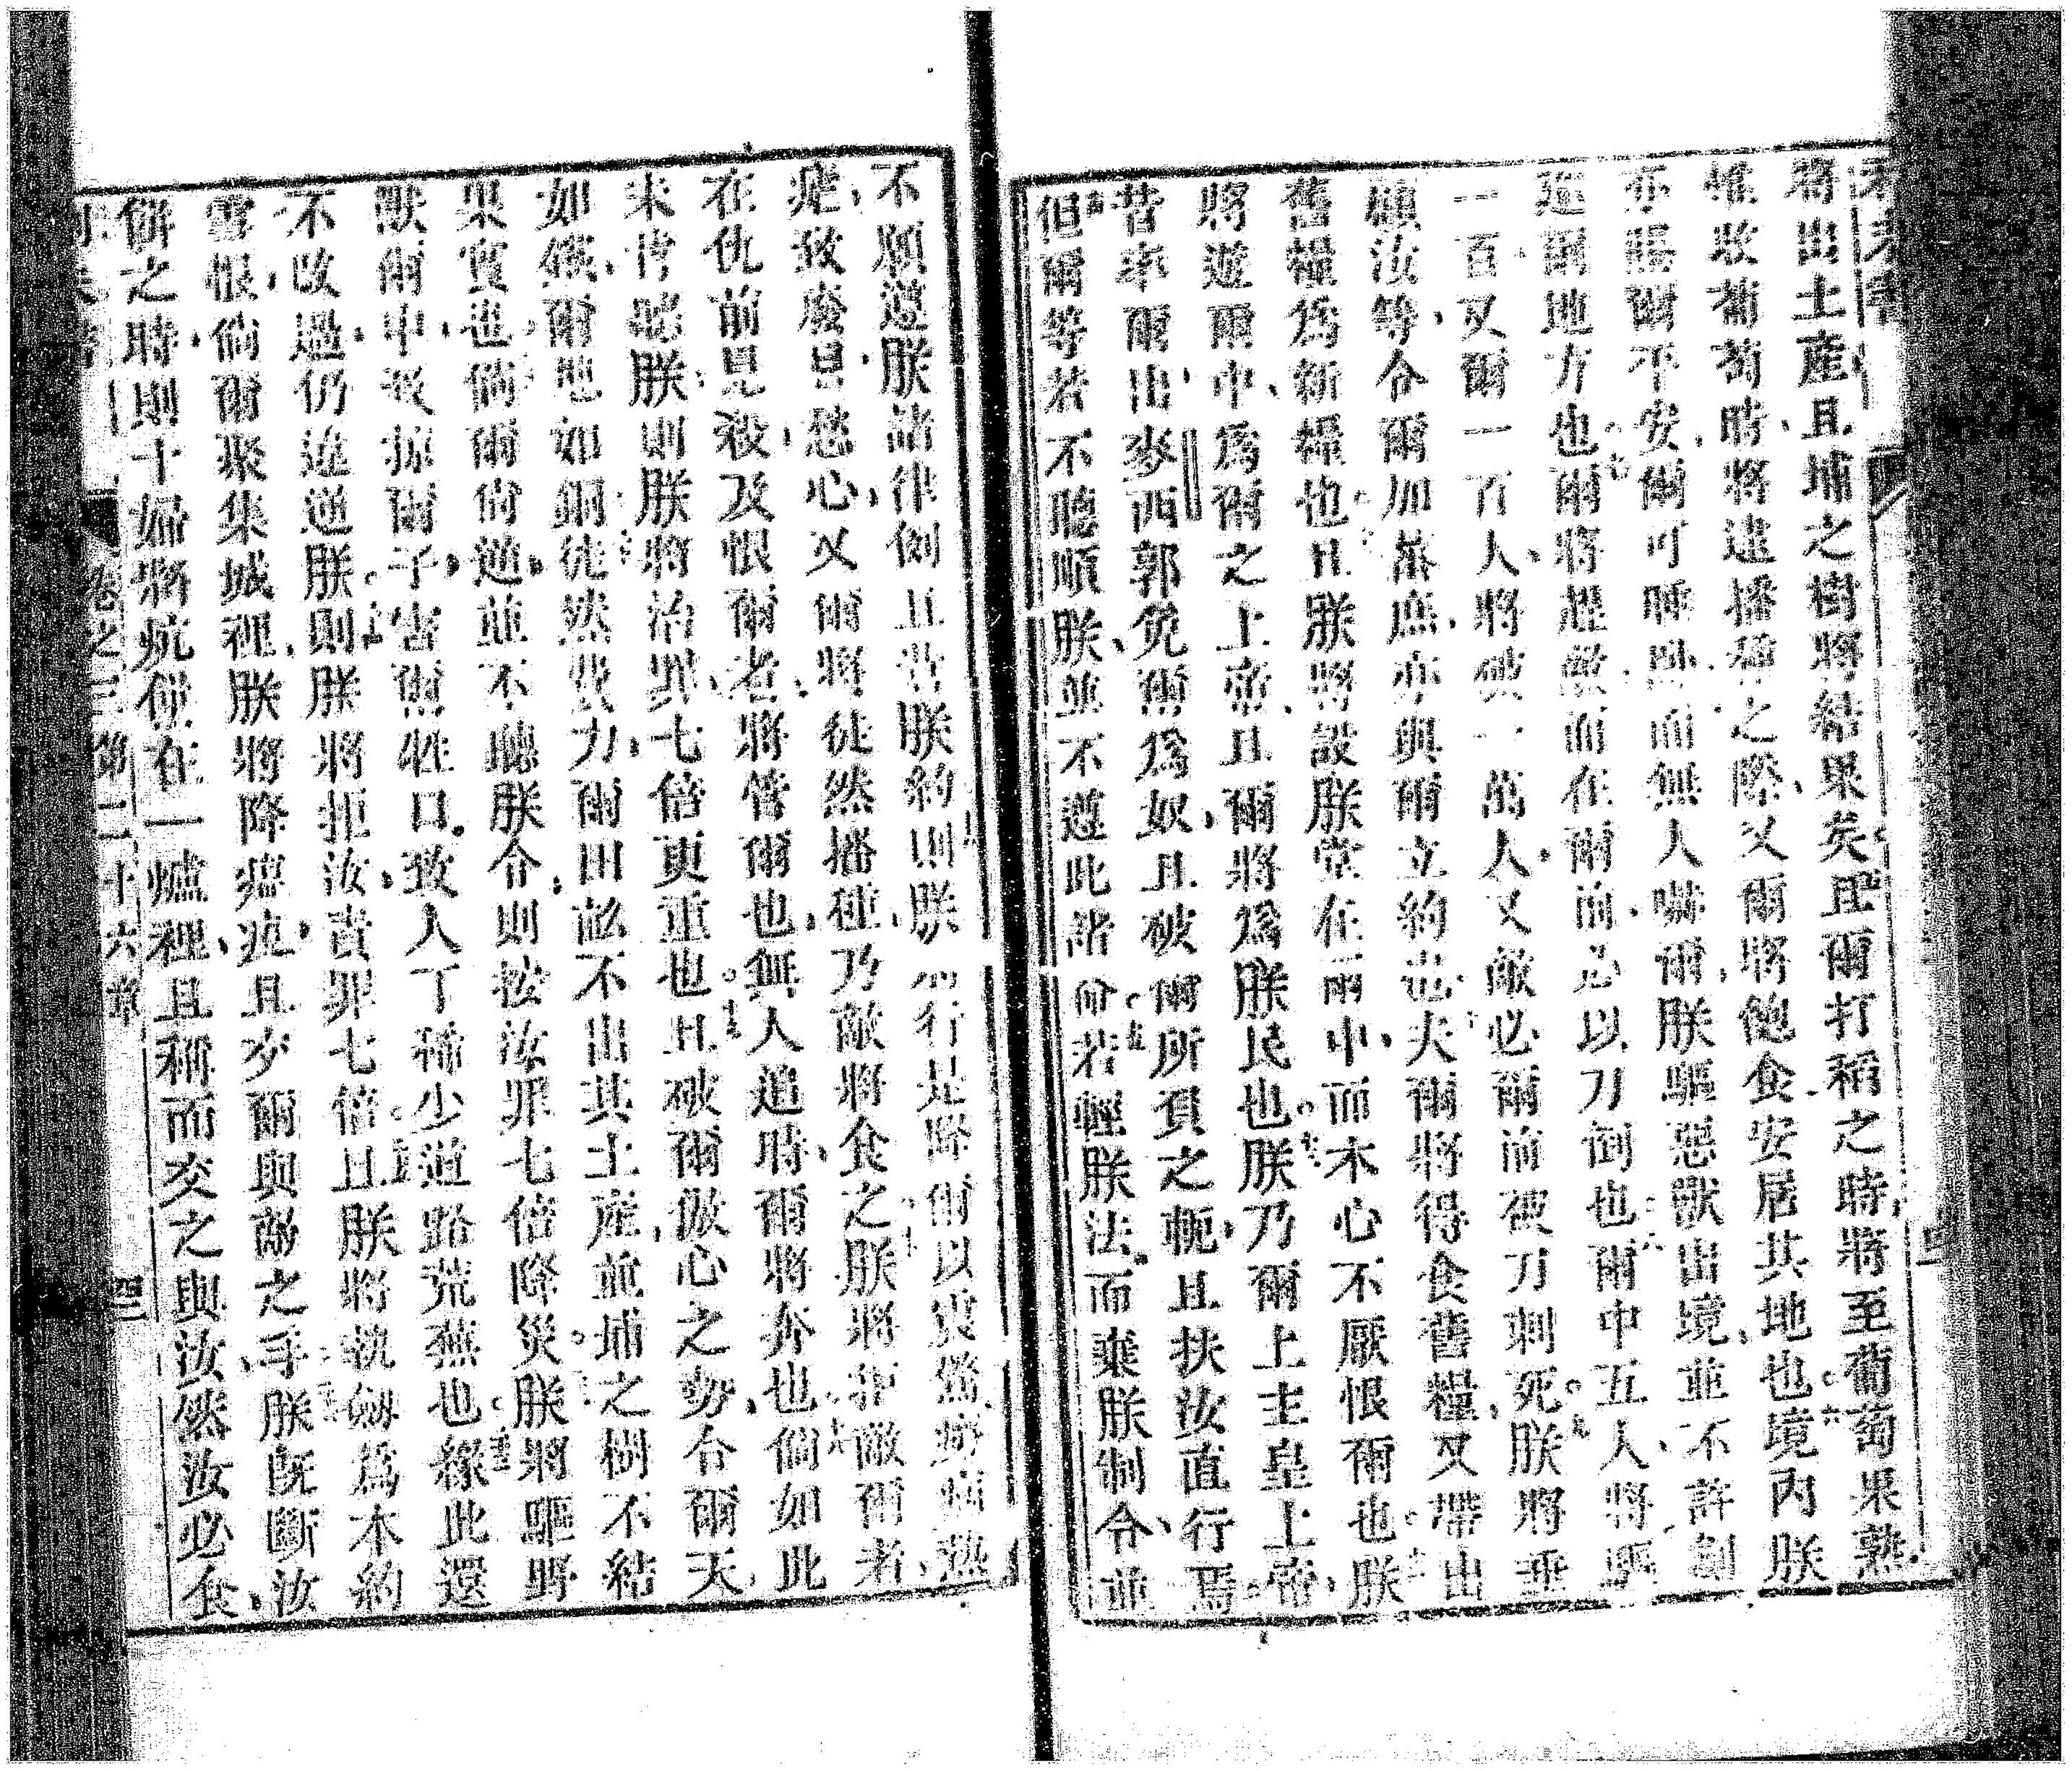 將出土產且埔之樹將結果矣且爾打稻之時將至葡萄果熟
惟收葡萄時、將逮播種之際、又爾將飽食安居其地也境內朕
亦賜爾平安、爾可睡臥而無人嚇爾、朕驅惡獸出境、並不許劍
巡爾地方也爾將趕敵而在爾前必以刀倒也爾中五人、將驅
一百又爾一百人、將破一萬人、又敵必爾前被刀刺死朕將垂
顧汝等、令爾加蕃庶、亦與爾立約也夫爾將得食舊糧、又帶出
舊糧為新糧也且朕將設朕堂在爾中、而本心不厭恨爾也朕
將遊爾中、為爾之上帝、且爾將為朕民也朕乃爾上主皇上帝、
昔率爾出麥西郭免爾為奴、且破爾所負之軛、且扶汝直行焉
但爾等若不聽順朕、並不遵此諸命若輕朕法、而棄朕制令、並
不願遵朕諸律例且背朕約則朕 行是降爾以 熱
瘧、致廢目愁心、又爾將徒然播種、乃敵將食之朕將拒敵爾者、
在仇前見殺、及恨爾者、將管爾也、無人追時、爾將奔也倘如此
未肯聽朕則朕將治罪、七倍更重也且破爾傲心之勢、令爾天、
如鐵、爾地如銅徒然費力、爾田畝不出其土產、並埔之樹不結
果實也倘爾尚逆、並不聽朕令、則按汝罪七倍降災。朕將驅野
獸爾中、致掠爾子、害爾牲口。致人丁稀少道路荒蕪也緣此還
不改過、仍逆朕則朕將拒汝、責罪七倍且朕將執劍為本約
雪恨、倘爾聚集城裡、朕將降瘟疫、且交爾與敵之手、朕既斷汝
餅之時、則十婦將炕餅在一爐裡、且稱而交之與汝、然汝必食、
卷之三 第二十六章